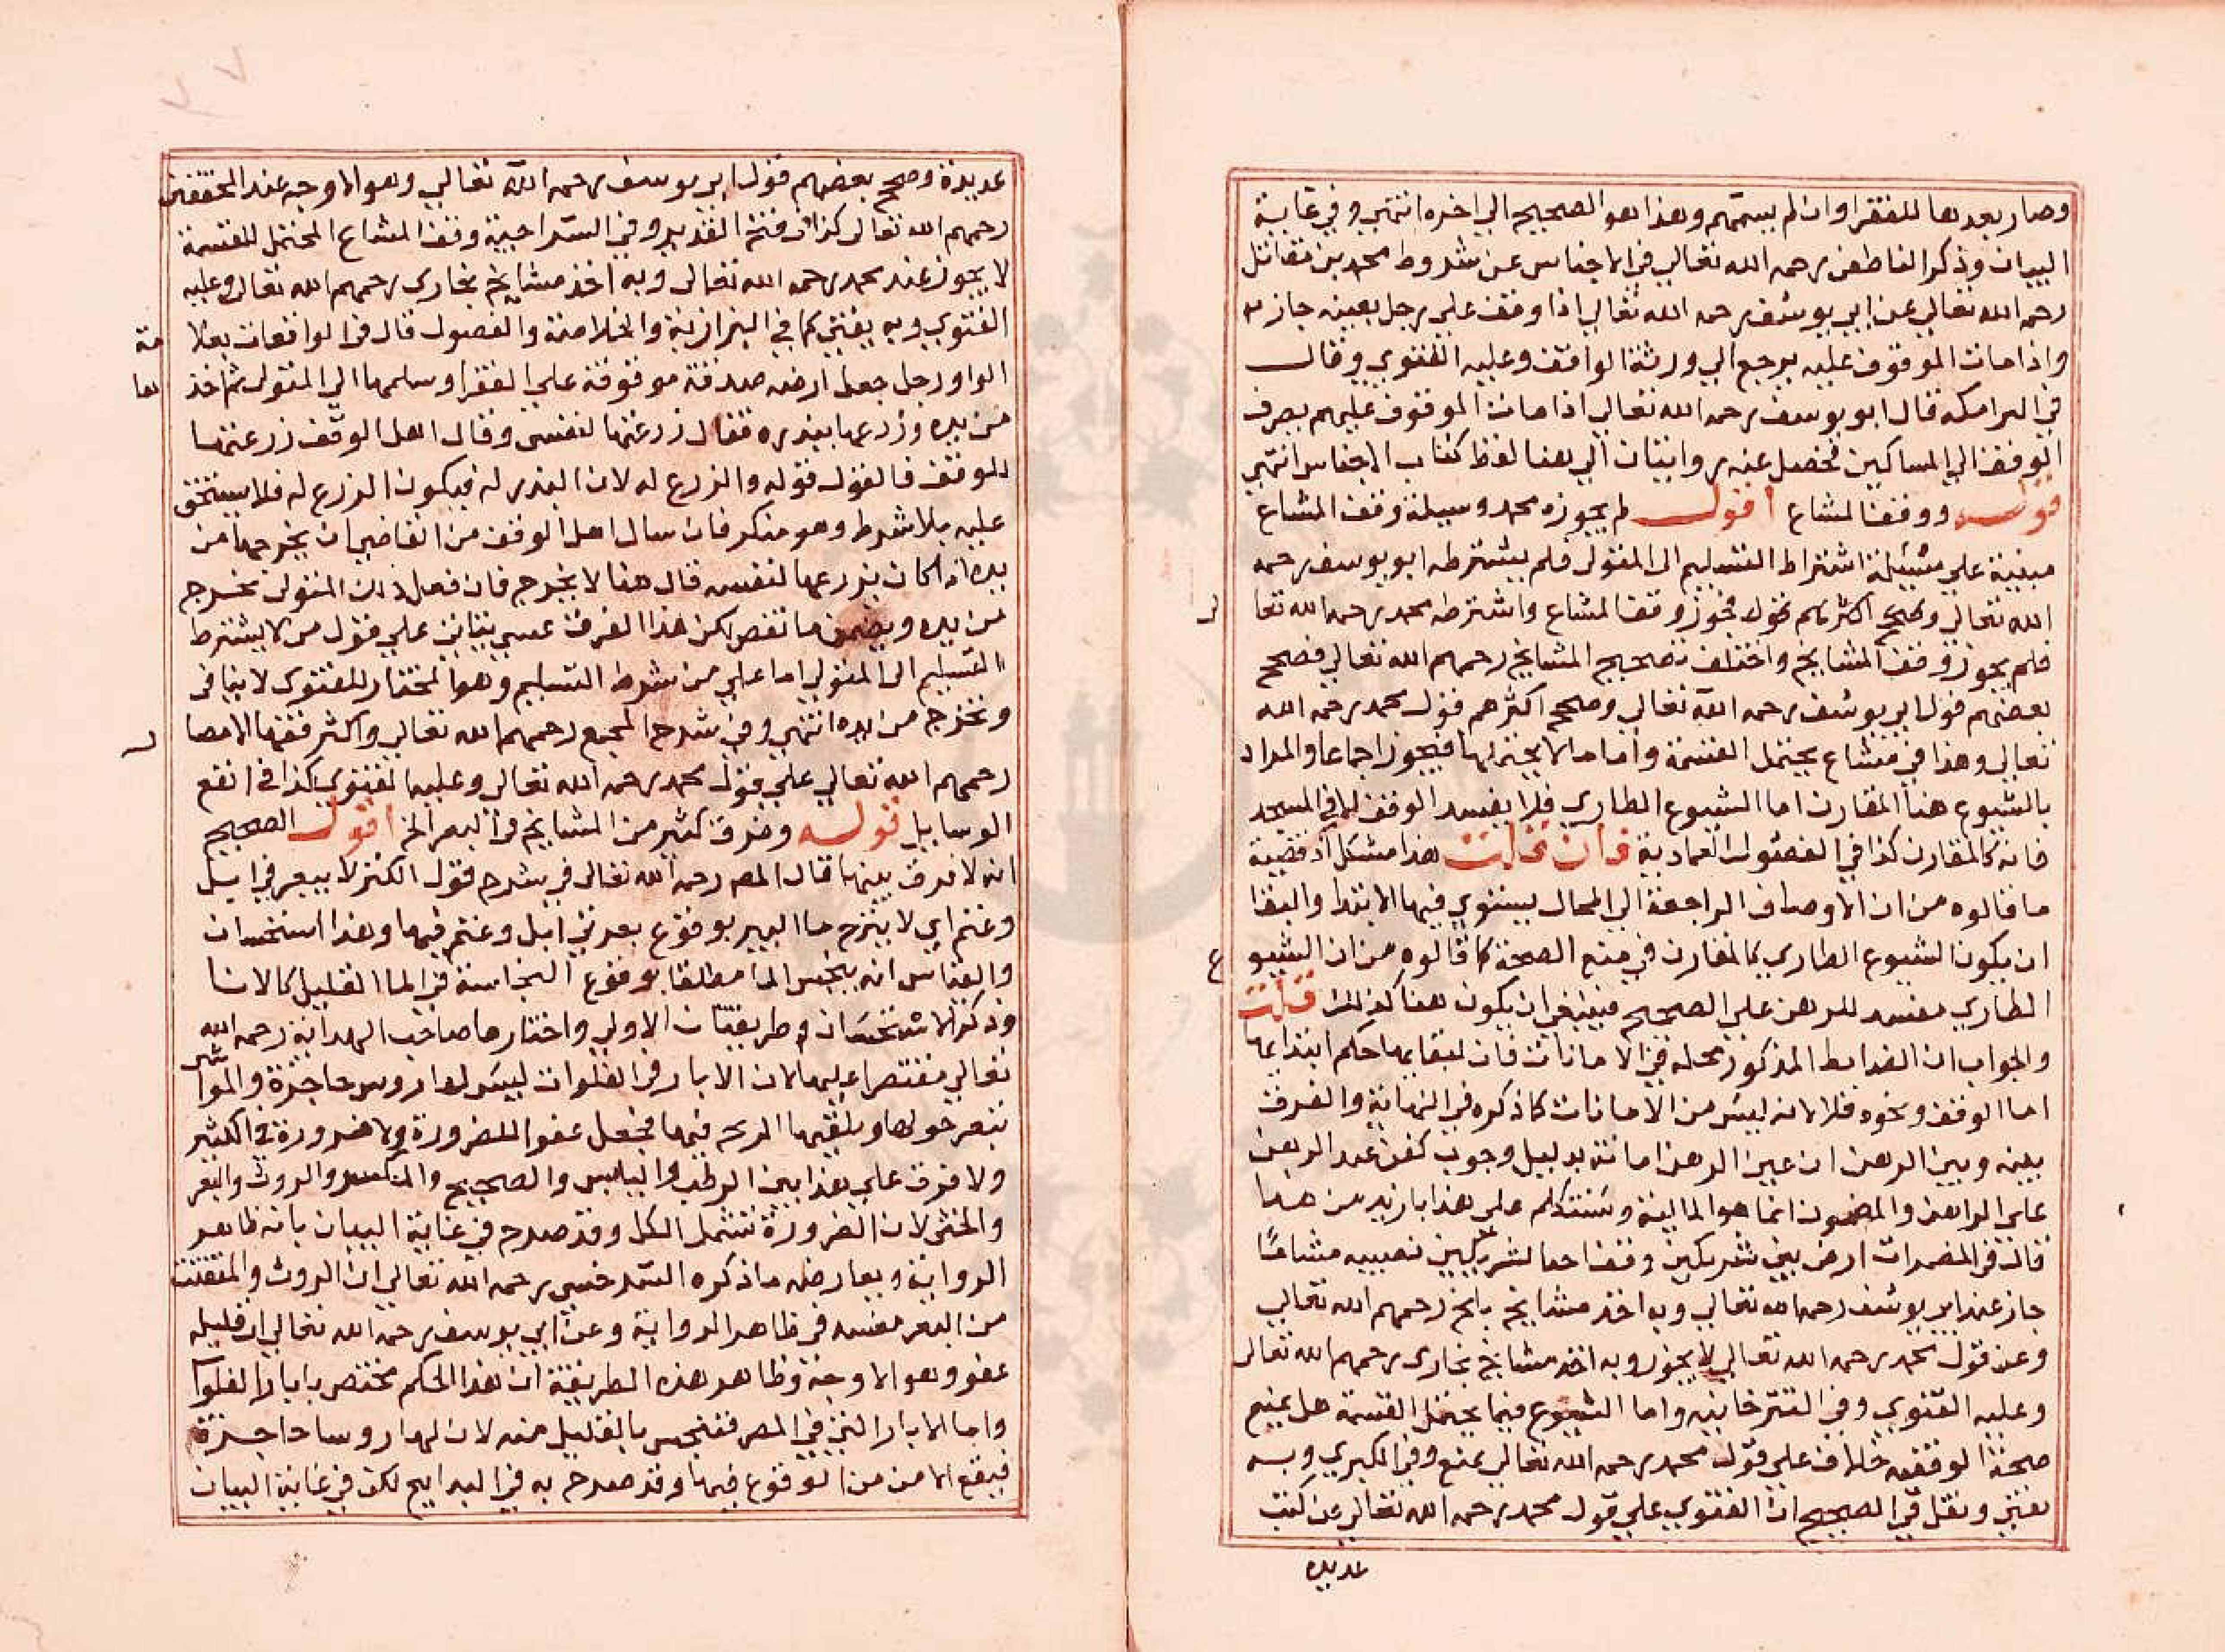 وصار بعدها للفقرا وان لم يسمهم وهذا هو الصحيح الي اخره انتهي وفي غاية
البيان وذكر الناطفي رحمه الله تعالي في الاجناس عن شروط محمد بن مقاتل
رحمه الله تعالي عن ابي يوسف رحمه الله تعالي اذا وقف علي رجل بعينه جاز
واذا مات الموقوف عليه يرجع الي ورثة الواقف وعليه الفتوي وقال
في البرامكه قال ابو يوسف رحمه الله تعالي اذا مات الموقوف عليهم يصرف
الوقف الي المساكين فحصل عنه روايتان الي هنا لفظ كتاب الاجناس انتهي
قوله ووقف المشاع اقول لم يجوزه محمد وسيلة وقف المشاع
مبنية علي مسئلة اشتراط التسليم الي المتولي فلم يشترطه ابو يوسف رحمه
الله تعالي وصحح اكثرهم قوله فجوز وقف المشاع واشترطه محمد رحمه الله تعا
لي
فلم يجوز وقف المشايخ واختلف تصحيح المشايخ رحمهم الله تعالي فصحح
بعضهم قول ابي يوسف رحمه الله تعالي وصحح اكثرهم قول محمد رحمه الله
تعالي وهذا في مشاع يحتمل القسمة واما ما لا يحتملها فيجوز اجماعا والمراد
بالشيوع هنا المقارن اما الشيوع الطاري فلا يفسد الوقف الا في المسجد
فانه كالمقارن كذا في الفصول العمادية فان قلت هذا مشكل اذ قضية
ما قالوه من ان الاوصاف الراجعة الي المحال يستوي فيها الابتدا والبقا
ان يكون الشيوع الطاري كالمقارن في منع الصحة كما قالوه من ان الشيو
ع
الطاري مفسد للرهن علي الصحيح فينبغي ان يكون هنا كذلك قلت
والجواب ان الضابط المذكور محله في الامانات فان لبقايها حكم ابتدايها
اما الوقف ونحوه فلا لانه ليس من الامانات كما ذكره في النهاية والفرق
بينه وبين الرهن ان عين الرهن امانة بدليل وجوب كفن عبد الرهن
علي الراهن والمضمون انما هو المالية وسنتكلم علي هذا بازيد من هنا
قال في المضمرات ارض بين شريكين وقف احد الشريكين نصيبه مشاعا
جاز عند ابي يوسف رحمه الله تعالي وبه اخذ مشايخ بلخ رحمهم الله تعالي
وعند قول محمد رحمه الله تعالي لا يجوز وبه اخذ مشايخ بخاري رحمهم الله تعالي
وعليه الفتوي وفي التترخانيه واما الشيوع فيما يحتمل القسمة هل يمنع
صحة الوقف خلاف علي قول محمد رحمه الله تعالي يمنع وفي الكبري وبه
يفتي ونقل في الصحيح ان الفتوي علي قول محمد رحمه الله تعالي عن كتب
عديدة
عديدة وصحح بعضهم قول ابي يوسف رحمه الله تعالي وهو الاوجه عند المحققين
رحمهم الله تعالي كذا في فتح القدير وفي السراجية وقف المشاع المحتمل للقسمة
لا يجوز عند محمد رحمه الله تعالي وبه اخذ مشايخ بخاري رحمهم الله تعالي وعليه
الفتوي وبه يفتي كما في البزازية والخلاصة والفصول قال في الواقعات بعلا
مة
الواو رجل جعل ارضه صدقة موقوفة علي الفقرا وسلمها الي المتولي ثم اخذ
ها
من يده وزرعها ببذره فقال زرعتها لنفسي وقال اهل الوقف زرعتها
للوقف فالقول قوله والزرع له لان البذر له فيكون الزرع له فلا يستحق
عليه بلا شرط وهو منكر فان سال اهل الوقف من القاضي ان يخرجها من
يده اذا كان يزرعها لنفسه قال هنا لا يخرج فان فعل ذلك المتولي يخرج
من يده ويضمن ما نقص لكن هذا الفرق عسي يتاتي علي قول من لا يشترط
التسليم الي المتولي اما علي من شرط التسليم وهو المختار للفتوي لا يتاتي
وتخرج من يده انتهي وفي شرح المجمع رحمهم الله تعالي واكثر فقها الامصا
ر
رحمهم الله تعالي علي قول محمد رحمه الله تعالي وعليه الفتوي كذا في انفع
الوسايل قوله وفرق كثير من المشايخ في البعر الخ اقول الصحيح
انه لا فرق بينها قال المص رحمه الله تعالي في شرح قول الكنز لا ببعرتي ابل
وغنم اي لا ينزح ما البير بوقوع بعرتي ابل وغنم فيها وهذا استحسان
والقياس انه ينجس الما مطلقا بوقوع النجاسة في الما القليل كالانا
وذكر للاستحسان طريقتان الاولي واختارها صاحب الهداية رحمه الله
تعالي مقتصرا عليها لان الابار في الفلوات ليس لها روس حاجزة والمواشي
تبعر حولها ويلقيها الريح فيها فجعل عفوا للضرورة ولا ضرورة في الكثير
ولا فرق علي هذا بين الرطب واليابس والصحيح والمنكسر والروث والبعر
والخثي لان الضرورة تشمل الكل وقد صرح في غاية البيان بانه ظاهر
الرواية ويعارضه ما ذكره السرخسي رحمه الله تعالي ان الروث والمتفتت
من البعر مفسد في ظاهر الرواية وعن ابي يوسف رحمه الله تعالي ان قليله
عفو وهو الاوجه وظاهر هذه الطريقة ان هذا الحكم مختص بابار الفلوا
واما الابار التي في المصر فتنجس بالقليل منه لان لها روسا حاجزة
فيقع الامن من الوقوع فيها وقد صرح به في البدايع لكن في غاية البيان